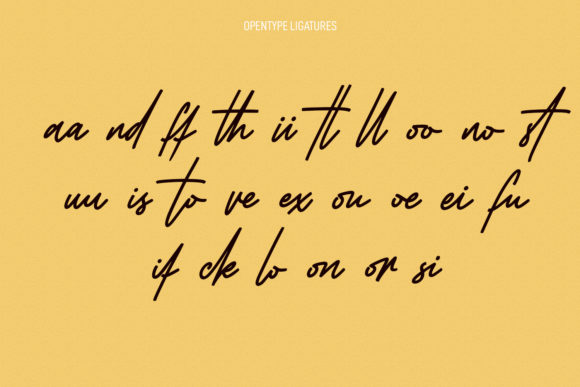 OPENTYPE LIGATURES
aa nd ff th ii tt ll oo no st
uu is to ve ex ou oe ei fu
if ck lo on or si